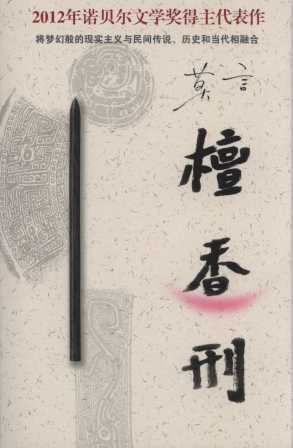 2012年诺贝尔文学奖得主代表作
将梦幻般的现实主义与民间传说、历史和当代相融合
莫言
檀香刑